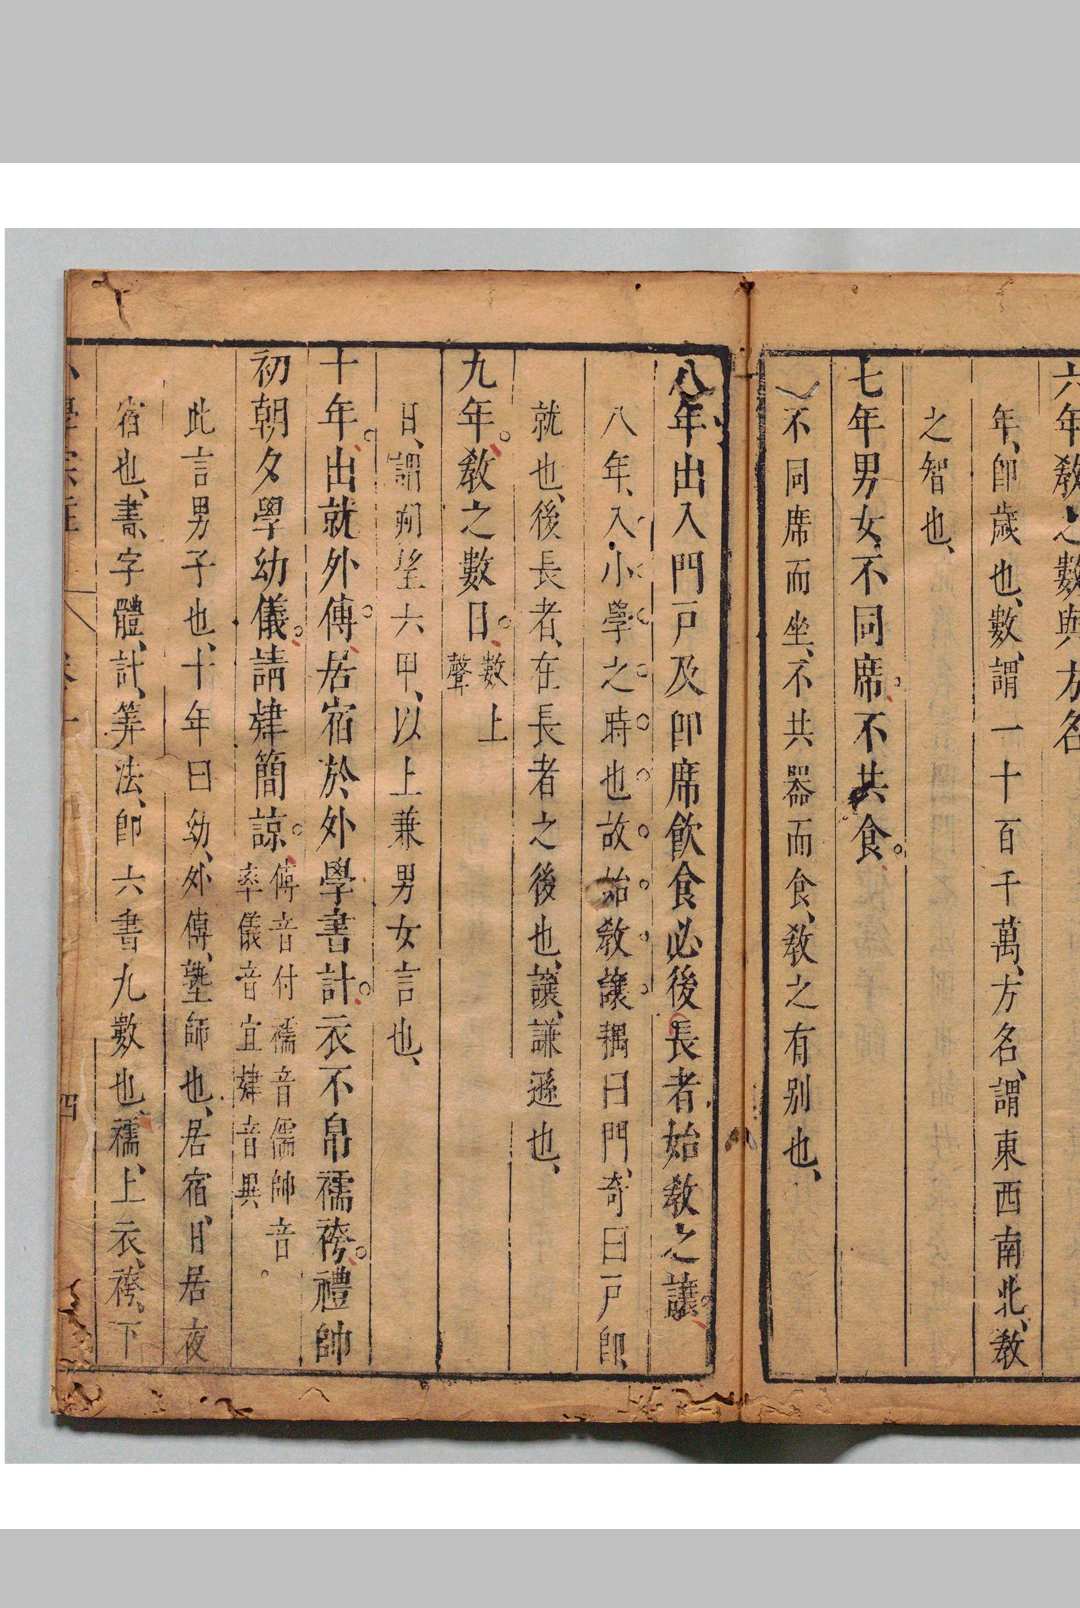 六年教之數與方名
年、即歲也、數、謂一十百千萬、方名、謂東西南北、教
之智也、
七年男女、不同席、不共食。
不同席而坐、不共器而食、教之有别也、
八年出入門戶及即席飮食必後長者始教之讓。
八年、入小學之時也故始教讓耦曰門、奇曰戶即、
就也、後長者、在長者之後也、讓、謙遜也、
九年。教之數日。數上聲
日、謂朔望六甲、以上兼男女言也、
十年。出就外傅。居宿於外學書計。衣不帛襦袴。禮帥
初朝夕學幼儀。請肄簡諒。傅音付襦音儒帥音率儀音宜肄音異
此言男子也、十年曰幼、外傅、塾師也、居宿、日居夜
宿也、書、字體、計、筭法、即六書九數也、襦、上衣、袴、下
四